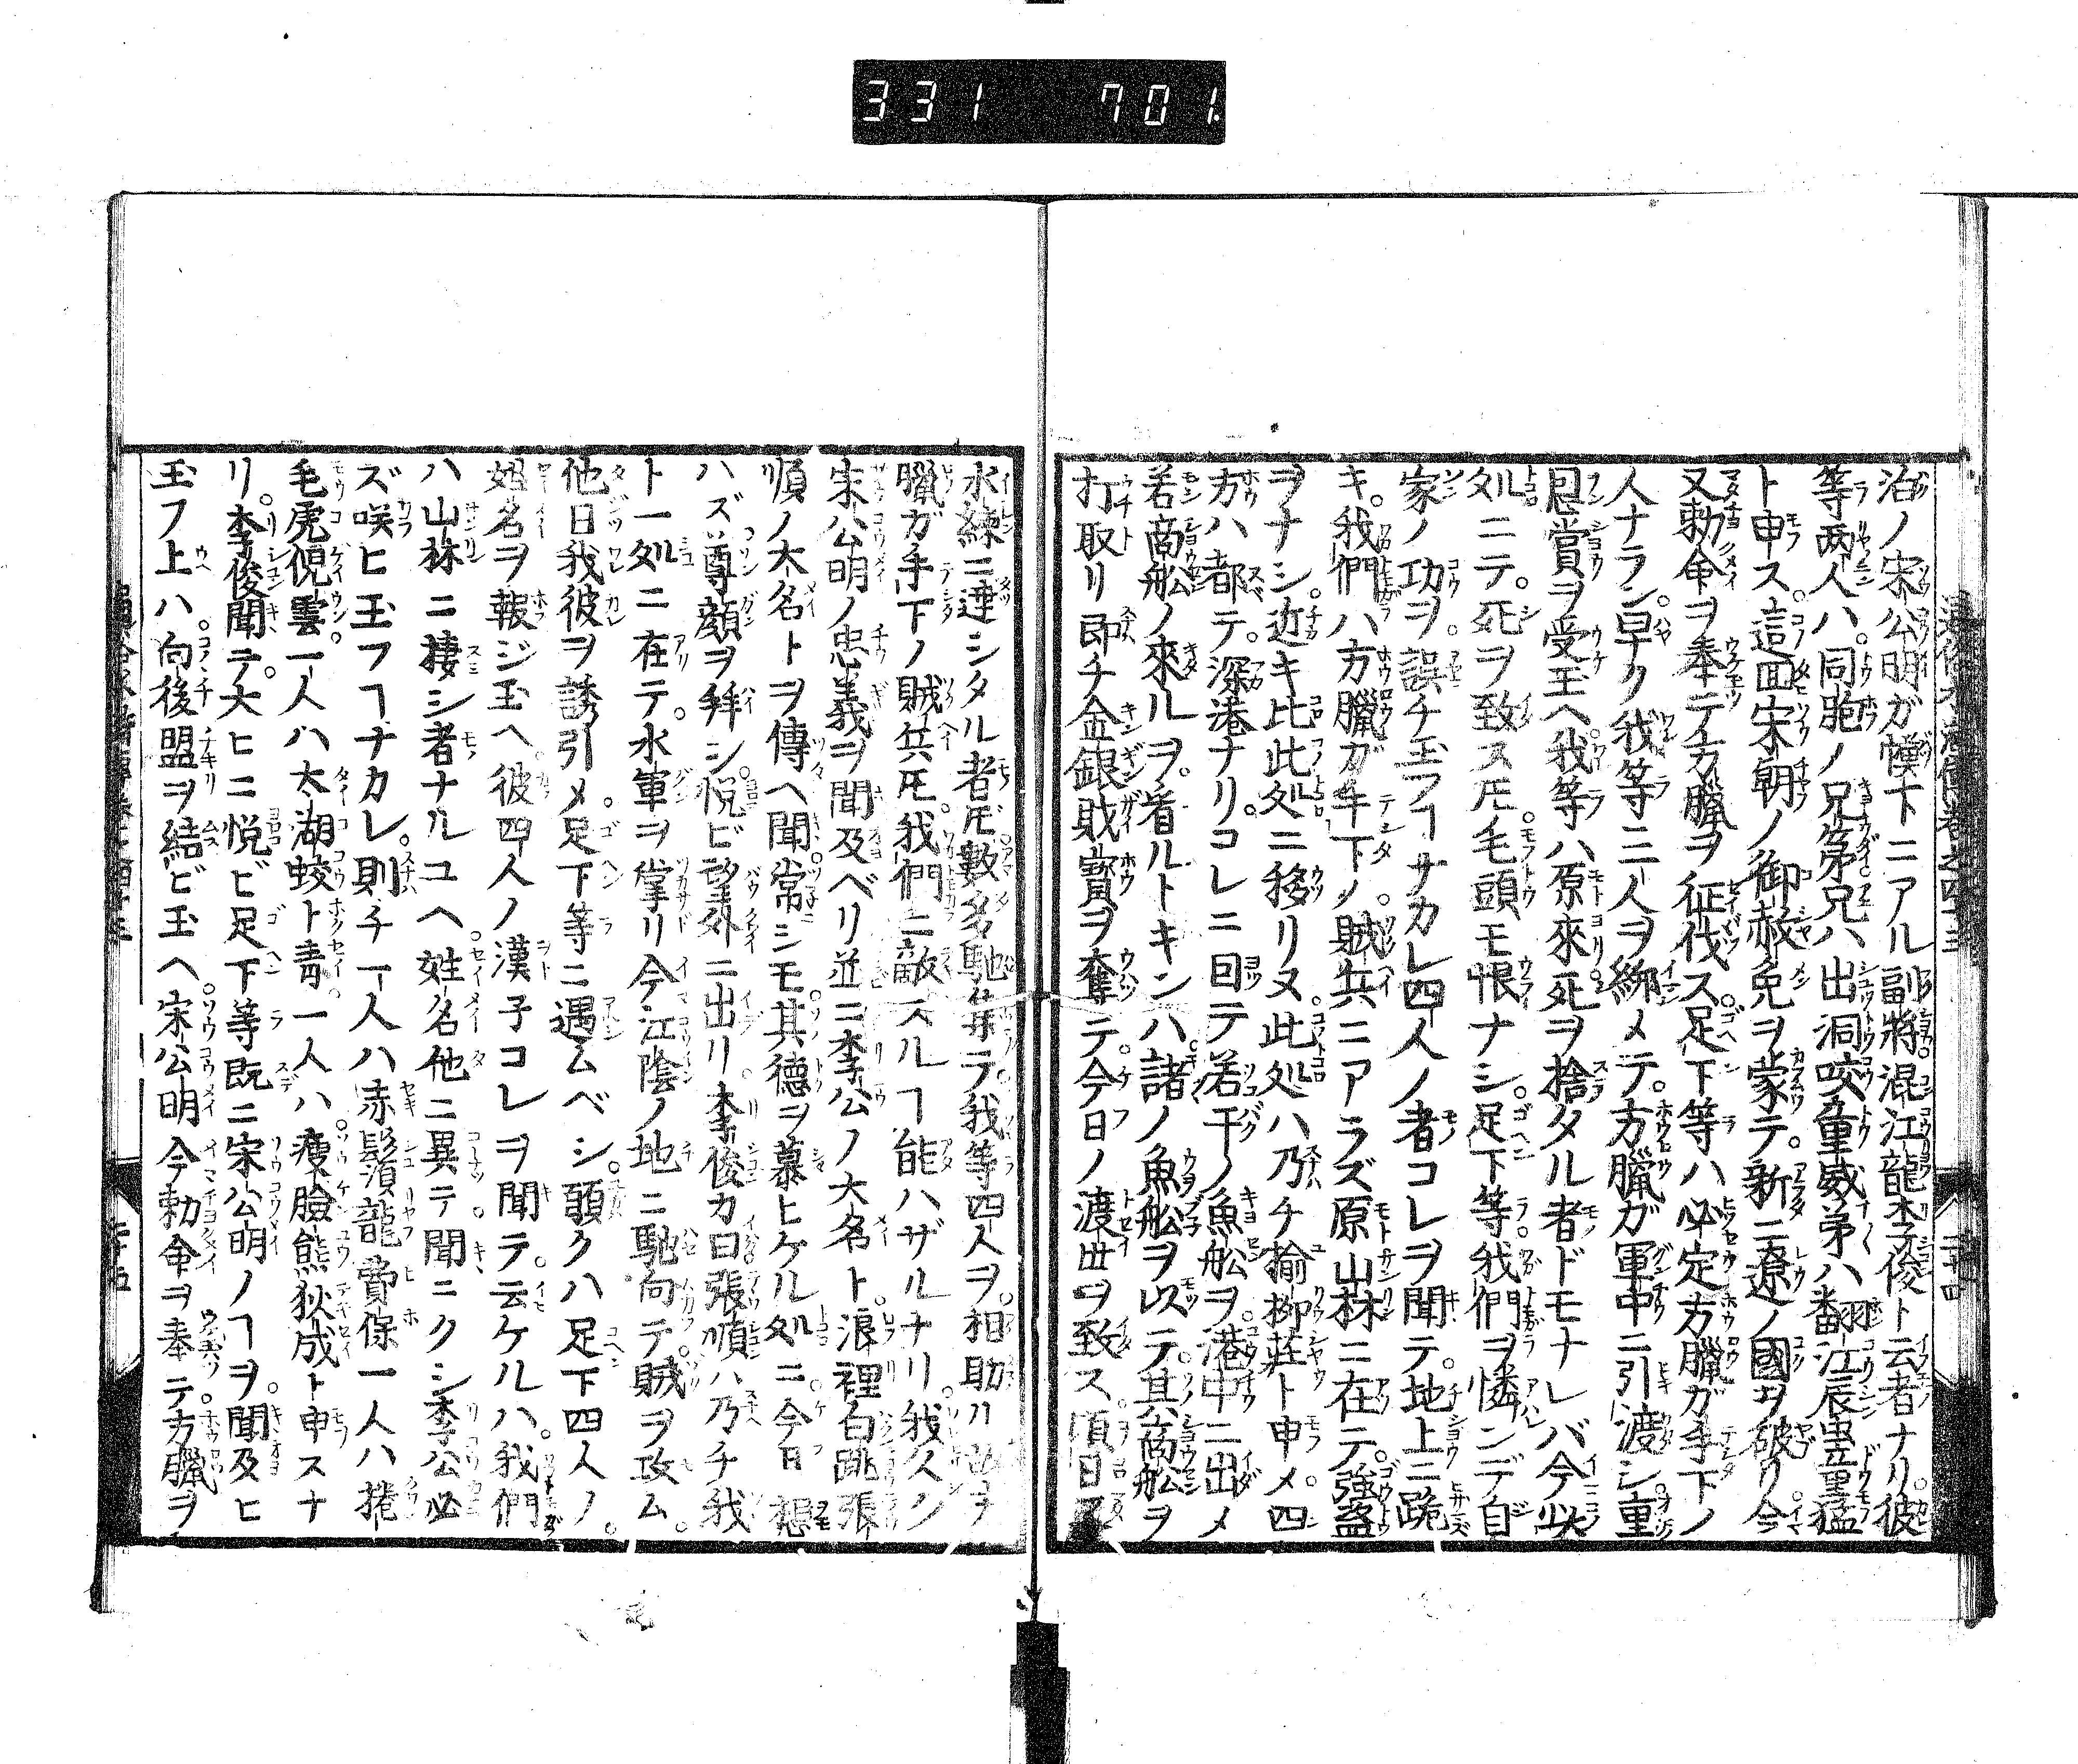 331 701
泊ノ宋公明ガ幕下ニアル副將混江龍李俊ト云者ナリ彼
等両人ハ同胞ノ兄第兄ハ出洞咬童威弟ハ翻江辰童猛
ト申ス這囬宋朝ノ御赦免ヲ蒙テ新ニ遼ノ國ヲ破リ今
又勅命ヲ奉テ方臘ヲ征伐ス足下等ハ必定方臘ガ手下ノ
人ナラン早ク我等三人ヲ綁メテ方臘ガ軍中ニ引渡シ重
恩賞ヲ受玉ヘ我等ハ原來死ヲ捨タル者ドモナレバ今此
処ニテ死ヲ致ス𪜈毛頭モ恨ナシ足下等我們ヲ憐ンデ自
家ノ功ヲ誤チ玉フヿナカレ四人ノ者コレヲ聞テ地上ニ跪
キ我們ハ方臘ガ手下ノ賊兵ニアラズ原山林ニ在テ強盗
ヲナシ近キ比此処ニ移リヌ此処ハ乃チ揄柳莊ト申メ四
方ハ都テ深港ナリコレニ因テ若干ノ魚舩ヲ港中ニ出メ
若商舩ノ來ルヲ看ルトキンハ諸ノ魚舩ヲ以テ其商舩ヲ
打取リ即チ金銀財寳ヲ奪テ今日ノ渡世ヲ致ス項日
水練ニ達シタル者𪜈數多馳集テ我等四人ヲ相助ル故ニ
臘ガ手下ノ賊兵𪜈我們ニ敵スルヿ能ハザルナリ我久ク
宋公明ノ忠義ヲ聞及ベリ並ニ李公ノ大名ト浪裡白跳張
順ノ大名トヲ傳ヘ聞常シモ其德ヲ慕ヒケル処ニ今日想
ハズ尊顔ヲ拜シ悦ビ望外ニ出リ李俊カ曰張順ハ乃チ我
ト一処ニ在テ水軍ヲ掌リ今江陰ノ地ニ馳向テ賊ヲ攻ム
他日我彼ヲ誘引メ足下等ニ遇ムベシ願クハ足下四人ノ
姓名ヲ報ジ玉ヘ彼四人ノ漢子コレヲ聞テ云ケルハ我們
ハ山林ニ棲シ者ナルユヘ姓名他ニ異テ聞ニクシ李公必
ズ咲ヒ玉フヿナカレ則チ一人ハ赤鬚龍費保一人ハ捲
毛虎倪雲一人ハ太湖蛟ト青一人ハ瘦臉熊狄成ト申スナ
リ李俊聞テ大ヒニ悦ビ足下等既ニ宋公明ノヿヲ聞及ヒ
玉フ上ハ向後盟ヲ結ビ玉ヘ宋公明今勅命ヲ奉テ方臘ヲ